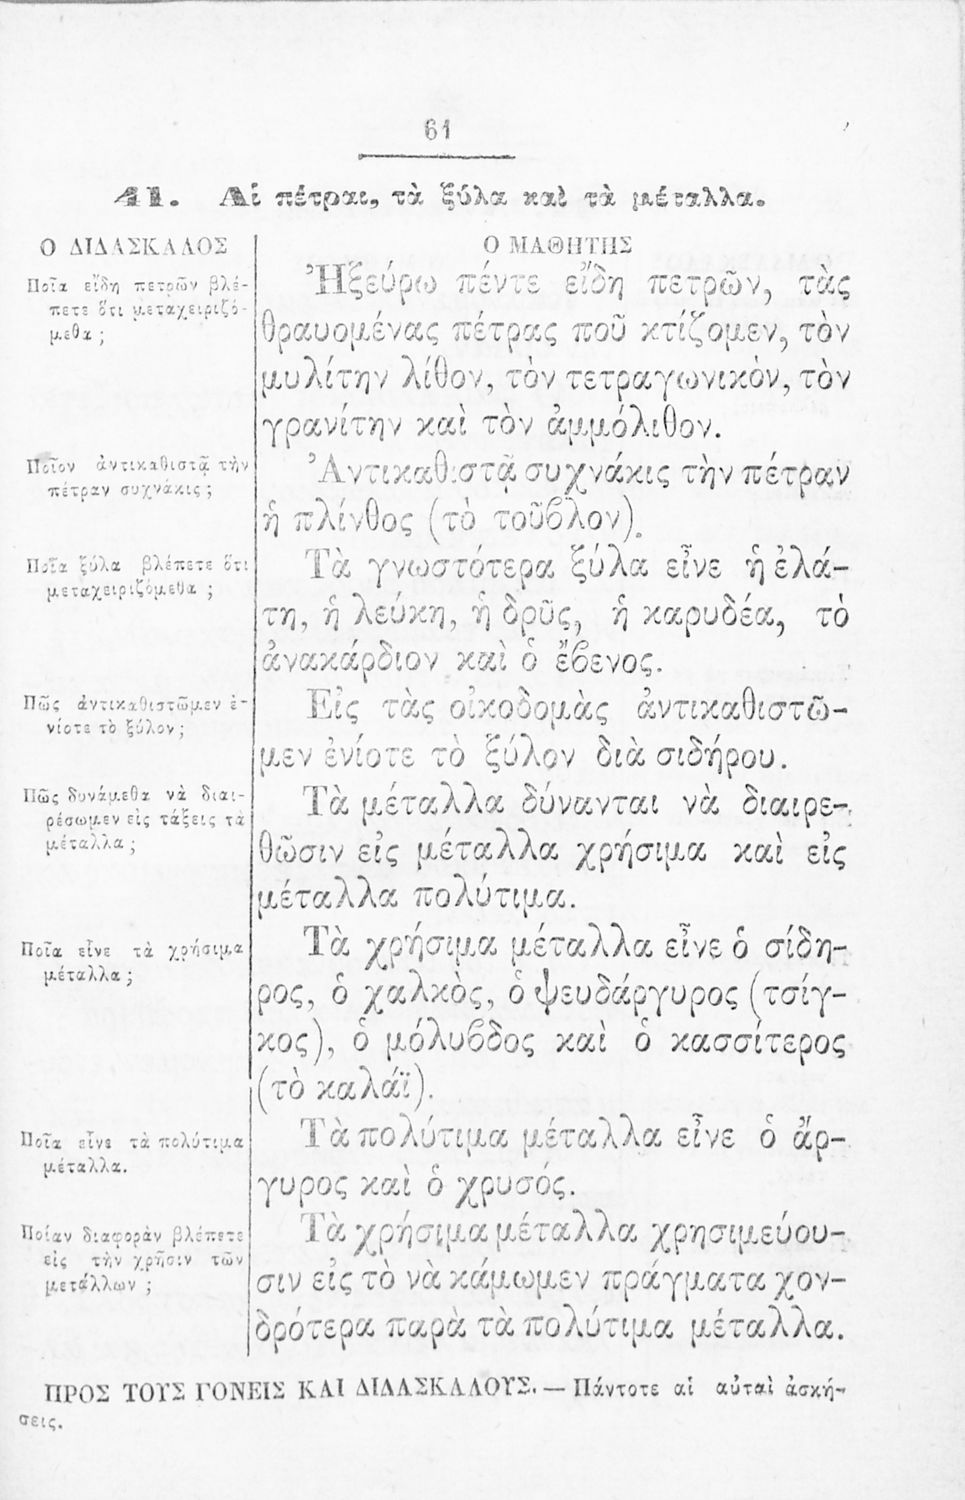 61
41. Αἱ πέτραι, τὰ ξύλα καὶ τὰ μέταλλα.
Ο ΔΙΔΑΣΚΑΛΟΣ
Ποῖα εἴδη πετρῶν βλέ-
πετε ὅτι μεταχειριζό-
μεθα ;
Ποῖον ἀντικαθιστᾷ τὴν
πέτραν συχνάκις ;
Ποῖα ξύλα βλέπετε ὅτι
μεταχειριζόμεθα ;
Πῶς ἀντικαθιστῶμεν ἐ-
νίοτε τὸ ξύλον ;
Πῶς δυνάμεθα νὰ διαι-
ρέσωμεν εἰς τάξεις τὰ
μέταλλα ;
Ποῖα εἶνε τὰ χρήσιμα
μέταλλα ;
Ποῖα εἶνε τὰ πολύτιμα
μέταλλα.
Ποίαν διαφορὰν βλέπετε
εἰς τὴν χρῆσιν τῶν
μετάλλων ;
Ο ΜΑΘΗΤΗΣ
Ἠξεύρω πέντε εἴδη πετρῶν, τὰς
θραυομένας πέτρας ποῦ κτίζομεν, τὸν
μυλίτην λίθον, τὸν τετραγωνικὸν, τὸν
γρανίτην καὶ τὸν ἀμμόλιθον.
Ἀντικαθιστᾷ συχνάκις τὴν πέτραν
ἡ πλίνθος (τὸ τοῦβλον).
Τὰ γνωστότερα ξύλα εἶνε ἡ ἐλά-
τη, ἡ λεύκη, ἡ δρῦς, ἡ καρυδέα, τὸ
ἀνακάρδιον καὶ ὁ ἔβενος.
Εἰς τὰς οἰκοδομὰς ἀντικαθιστῶ-
μεν ἐνίοτε τὸ ξύλον διὰ σιδήρου.
Τὰ μέταλλα δύνανται νὰ διαιρε-
θῶσιν εἰς μέταλλα χρήσιμα καὶ εἰς
μέταλλα πολύτιμα.
Τὰ χρήσιμα μέταλλα εἶνε ὁ σίδη-
ρος, ὁ χαλκὸς, ὁ ψευδάργυρος (τσίγ-
κος), ὁ μόλυβδος καὶ ὁ κασσίτερος
(τὸ καλάϊ).
Τὰ πολύτιμα μέταλλα εἶνε ὁ ἄρ-
γυρος καὶ ὁ χρυσός.
Τὰ χρήσιμα μέταλλα χρησιμεύου-
σιν εἰς τὸ νὰ κάμωμεν πράγματα χον-
δρότερα παρὰ τὰ πολύτιμα μέταλλα.
ΠΡΟΣ ΤΟΥΣ ΓΟΝΕΙΣ ΚΑΙ ΔΙΔΑΣΚΑΛΟΥΣ. — Πάντοτε αἱ αὐταὶ ἀσκή-
σεις.